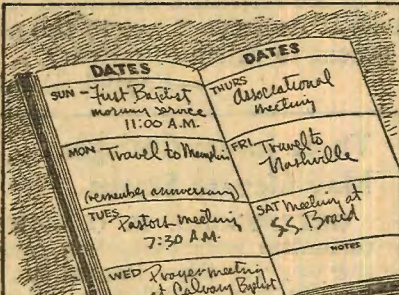 DATES
SUN - First Baptist
morning service
11:00 A.M.
MON Travel to Memphis
(remember anniversary)
TUES Pastors meeting
7:30 A.M.
WED Prayer meeting
at Calvary Baptist
DATES
THURS Associational
meeting
FRI Travel to
Nashville
SAT Meeting at
S.S. Board
NOTES